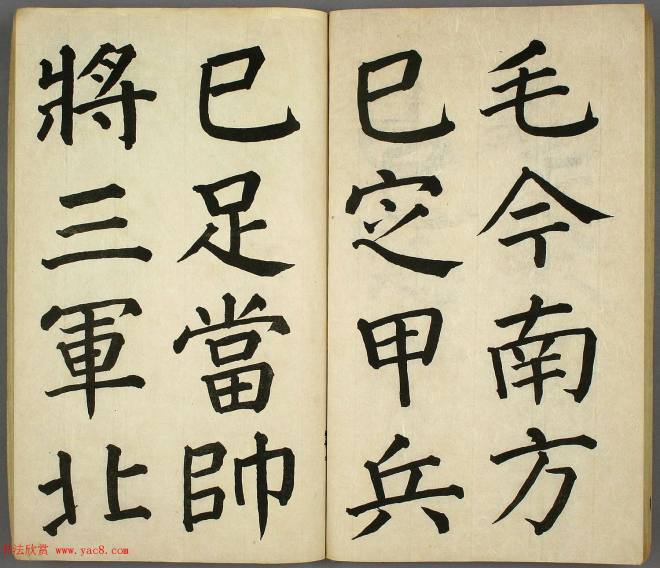 毛今南方
已定甲兵
已足當帥
將三軍北
书法欣赏 www.yac8.com